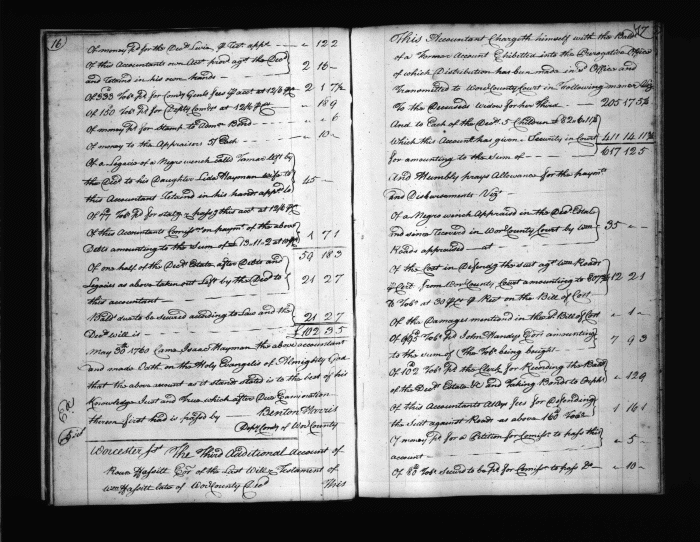 16
Of money Pd for the Decd Levie & Test appr - - " 12 2
Of this Accountants own Acct provd agt the Decd
and Retaind in his own hands - 2 16 -
Of 333 Tobo Pd for County Goods fees & acct at 12/6 2 1 7½
Of 150 Tobo Pd for Depty Comry at 12/6 - " 18 9
Of money Pd for Stamp to Admn Bond - - " " 6
Of money to the Appraisers 5/ Each - - " 10 -
Of a Legacie of a Negro wench Called Tamer left by
the Decd to his Daughter Leda Hayman wife to
this Accountant Retaind in his hands appd to 45 -
Of 77 Tobo Pd for stating & passing this acct at 12/6
Of this Accountants Comisn on payment of the above
Debts amounting to the Sum of 13.11.2 at 1 7 1
59 18 3
Of one half of the Decd Estate after Debts and
Legacies as above taken out Left by the Decd to 21 2 7
this accountant -
Balla due to be secured according to Law and the
Decd will is - 21 2 7
£102 3 5
May 30th 1760 Came Isaac Hayman the above accountant
and made Oath on the Holy Evangels of Almighty God
that the above account as it stands stated is to the best of his
Knowledge Just and True which after Due Examination
thereon first had is passed by - Benton Harris
Depty Comry of Wor County
Worcester ss The Third Additional Account of
Rown Hassitt Exr of the Last Will & Testament of
Wm Hassitt late of Wor County Decd This
17
This Accountant Chargeth himself with the Balla
of a Former Account Exhibited into the Prerogative Office
of which Distribution has been made in sd Office and
Transmitted to Wor County Court in Following manner Viz
To the Deceaseds Widow for her Third - 205 17 5¾
And to Each of the Decds 5 Children £ 82 6 11¾
Which this Account has given Security in Court 411 14 11½
for amounting to the Sum of - 617 12 5
And Humbly prays Allowance for the paymts
and Disbursements Viz -
Of a Negro wench Appraisd in the Decds Estate
and since recovered in Wor County Court by Wm 35 - -
Roads appraised at -
Of the Cost in Defending the suit agt Wm Roads
& Cost from Wor County Court amounting to 12 2 1
lb Tobo at 30/ & Rest on the Bill of Cost
Of the Damages mentiond in the sd Bill of Cost - " 1 -
Of 995 Tobo Pd John Handy Esqr amounting
to the sum of the Tobo being bought - 7 9 3
Of 102 Tobo Pd the Clerk for Recording the Balla
of the Decds Estate &c and Taking Bonds to Orphs " 12 9
Of this Accountants Attys fees for Defending
the Suit against Roads as above 160 Tobo 1 16 1
Of money Pd for a Petition for Comisr to pass this
account - " 5 -
Of 80 Tobo secured to be Pd for Comisr to pass Do " 10 -